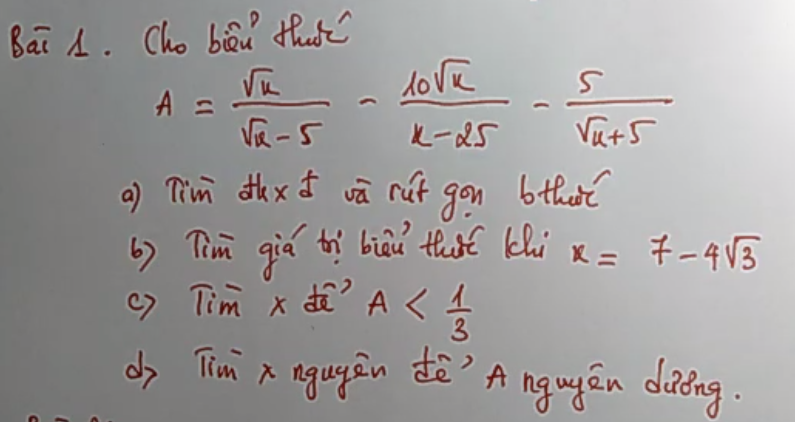 Bài 1. Cho biểu thức
A = √x / (√x - 5) - 10√x / (x - 25) - 5 / (√x + 5)
a) Tìm đkxđ và rút gọn bthức
b) Tìm giá trị biểu thức khi x = 7 - 4√3
c) Tìm x để A < 1/3
d) Tìm x nguyên để A nguyên dương.